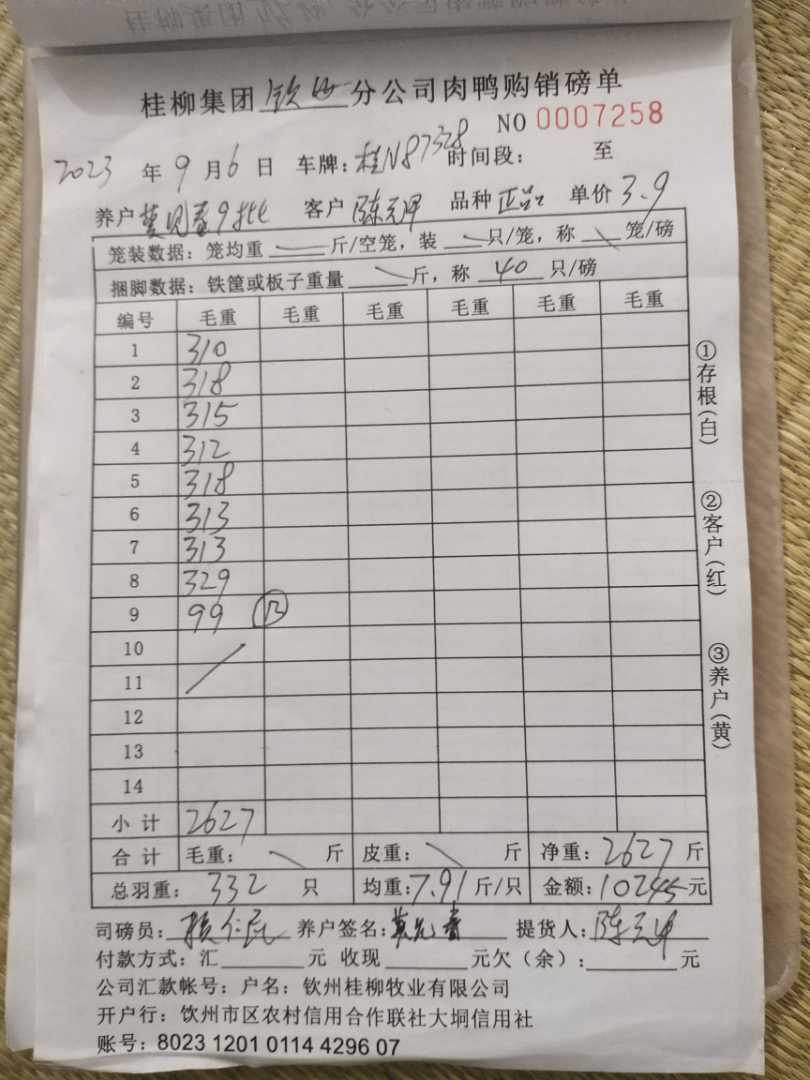 桂柳集团 钦州 分公司肉鸭购销磅单
NO 0007258
2023 年 9 月 6 日 车牌：桂N87328 时间段： 至
养户 9批 客户 陈 品种 正品 单价 3.9
笼装数据：笼均重 斤/空笼，装 只/笼，称 笼/磅
捆脚数据：铁筐或板子重量 斤，称 40 只/磅
编号 毛重 毛重 毛重 毛重 毛重 毛重
1 310
2 318
3 315
4 312
5 318
6 313
7 313
8 329
9 99
10
11
12
13
14
小计 2627
合计 毛重： 斤 皮重： 斤 净重：2627 斤
总羽重： 332 只 均重：7.91 斤/只 金额：10245 元
司磅员： 养户签名： 提货人：陈
付款方式：汇 元 收现 元欠（余）： 元
公司汇款帐号：户名：钦州桂柳牧业有限公司
开户行：钦州市区农村信用合作联社大垌信用社
账号：8023 1201 0114 4296 07
①存根（白）
②客户（红）
③养户（黄）